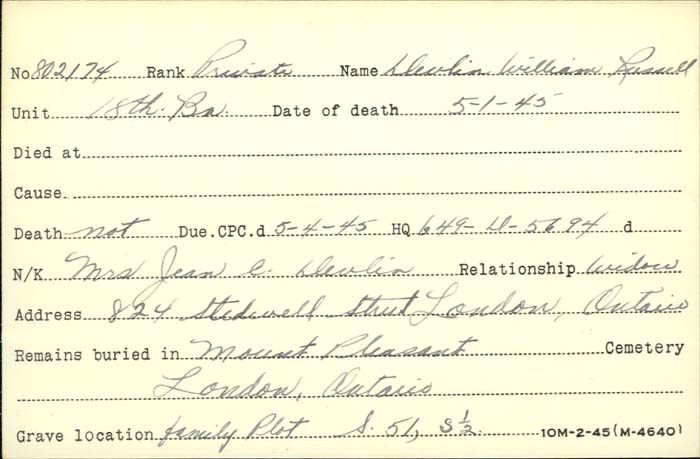 No 802174 Rank Private Name Devlin William Russell
Unit 18th. Bn. Date of death 5-1-45
Died at
Cause
Death not Due. CPC.d 5-4-45 HQ 649-D-5694 d
N/K Mrs Jean C. Devlin Relationship Widow
Address 824 Stedwell Street London, Ontario
Remains buried in Mount Pleasant Cemetery
London, Ontario
Grave location family Plot S. 51, S½ 10M-2-45(M-4640)